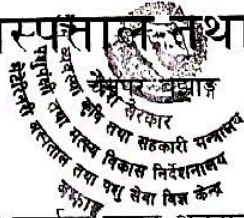 स्पताल तथा
चैनपुर बझाङ
सरकार
व्यवस्था कृषि तथा सहकारी मन्त्रालय
पशुपंक्षी तथा मत्स्य विकास निर्देशनालय
भेटेरिनरी अस्पताल तथा पशु सेवा विज्ञ केन्द्र
बझाङ